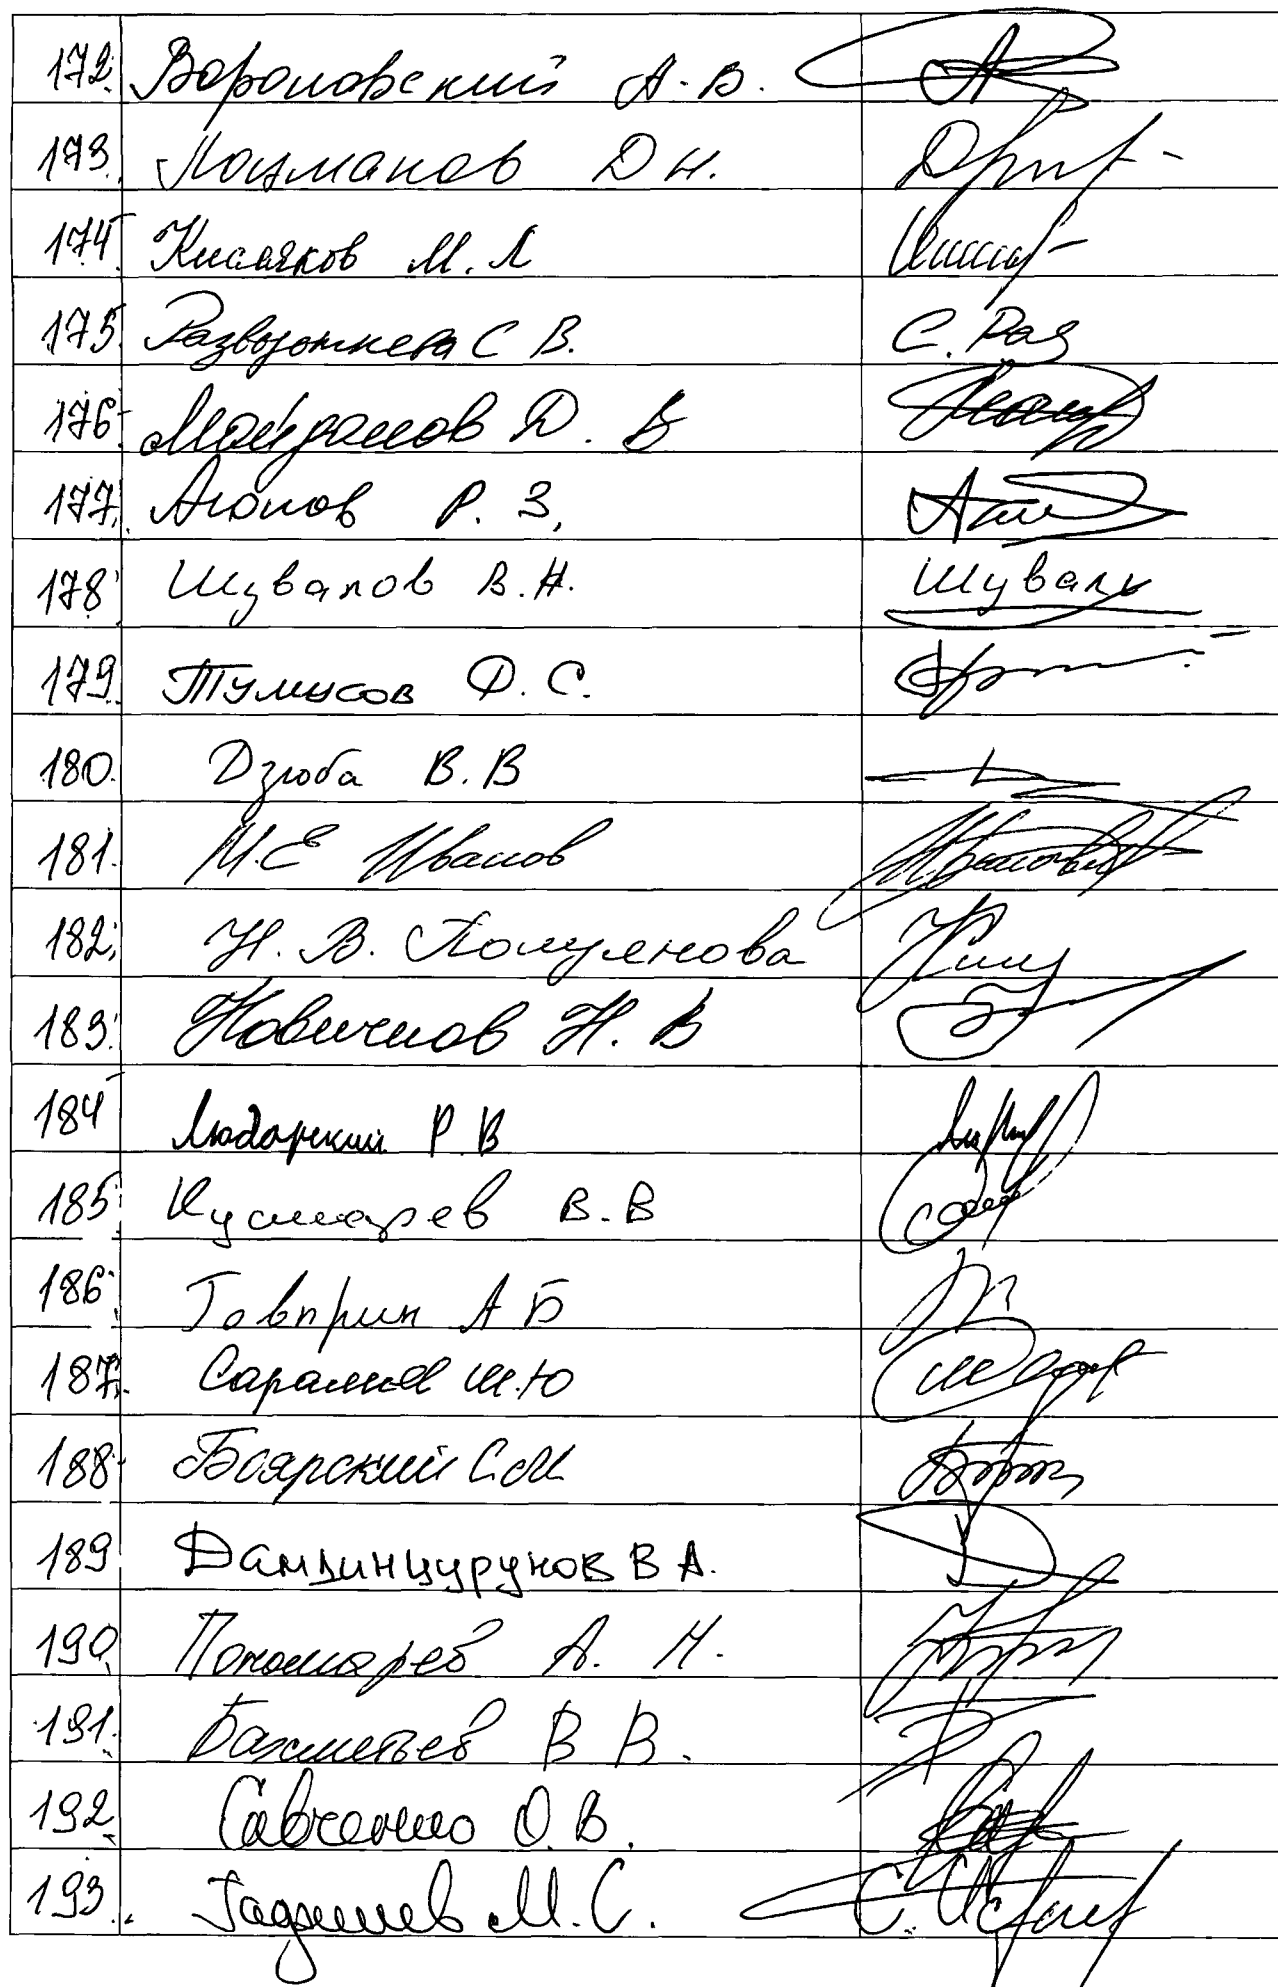 172. Вороновский А.В.
173. Лоцманов Д Н.
174. Кисляков М. Л
175. С В. С. Раз
176. Майданов Д. В
177. Аюпов Р. З.
178. Шувалов В.Н. Шуваль
179. Тумусов Ф. С.
180. Дзюба В. В
181. М. Е Иванов
182. Н. В. Полуянова
183. Новичков Н. В
184 Любарский Р В
185. Кушнарев В. В
186. Говырин А Б
187. Саралиев Ш.Ю
188. Боярский С.М
189 Дамдинцурунов В А.
190. Пономарев А. Н.
191. Бахметьев В В.
192. Савченко О. В.
193. Гаджиев М. С.